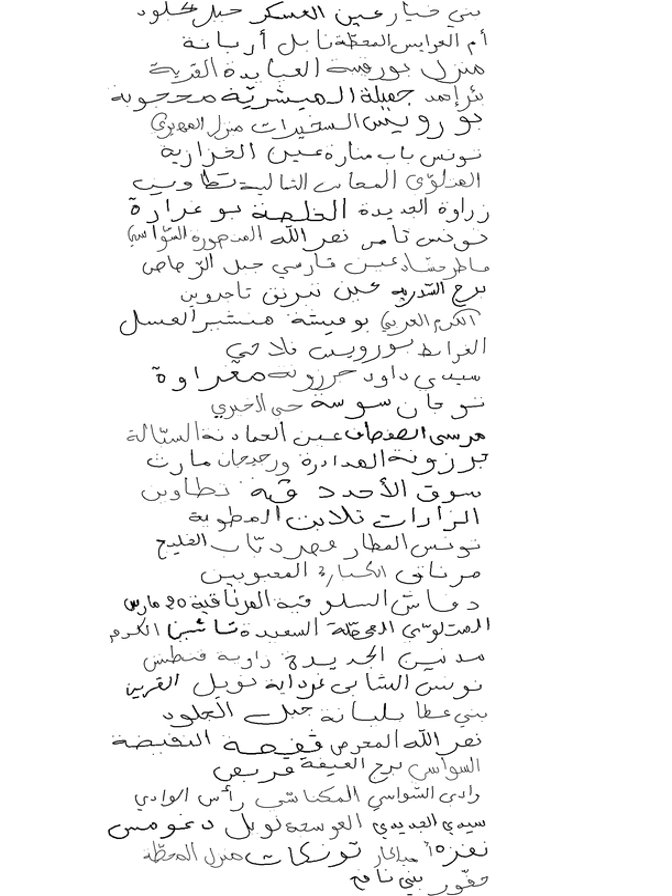 بني خيار عين العسكر جبل الجلود
أم العرايس المحطة نابل أريانة
منزل بورقيبة العبايدة القرية
بئر احمد جميلة الهيشرية محجوبة
بورويس السخيرات منزل المهيري
تونس باب منارة عين الغرازية
المتلوي المعاب الشالية تطاوين
زراوة الجديدة الخلصة بو غرارة
تونس ثامر نصر الله المنصورة السواسي
ماطر حشاد عين فارسي جبل الرصاص
برج السدرية عين تبرنق تاجروين
الكرم الغربي بوفيشة هنشير العسل
الغرابط بورويس فلاحي
سيدي داود حرزونة مغراوة
توجان سوسة حي الخيري
مرسى القصطاف عين الحمادنة السبالة
جرزونة الهدادرة ورجيجان مارث
سوق الأحد قبة تطاوين
الزارات تلابت المطوية
تونس المطار مهرد تاب الخليج
مرناق الكبارة المعبوبين
دقاش السلوقية المرناقية 20 مارس
المتلوي المحطة السعيدة شاشية الكرم
مدنين الجديدة زاوية قنطش
تونس الشابي غرداية نويل القرين
بني عطا بليانة جبل الجلود
نصر الله المعرض قفصة النفيضة
السواسي برج العيفة قربص
وادي السواسي المكناسي رأس الوادي
سيدي الجديدي العوسجة نويل دغومس
نفزة تونكات منزل المحطة
حفوز بني نافع